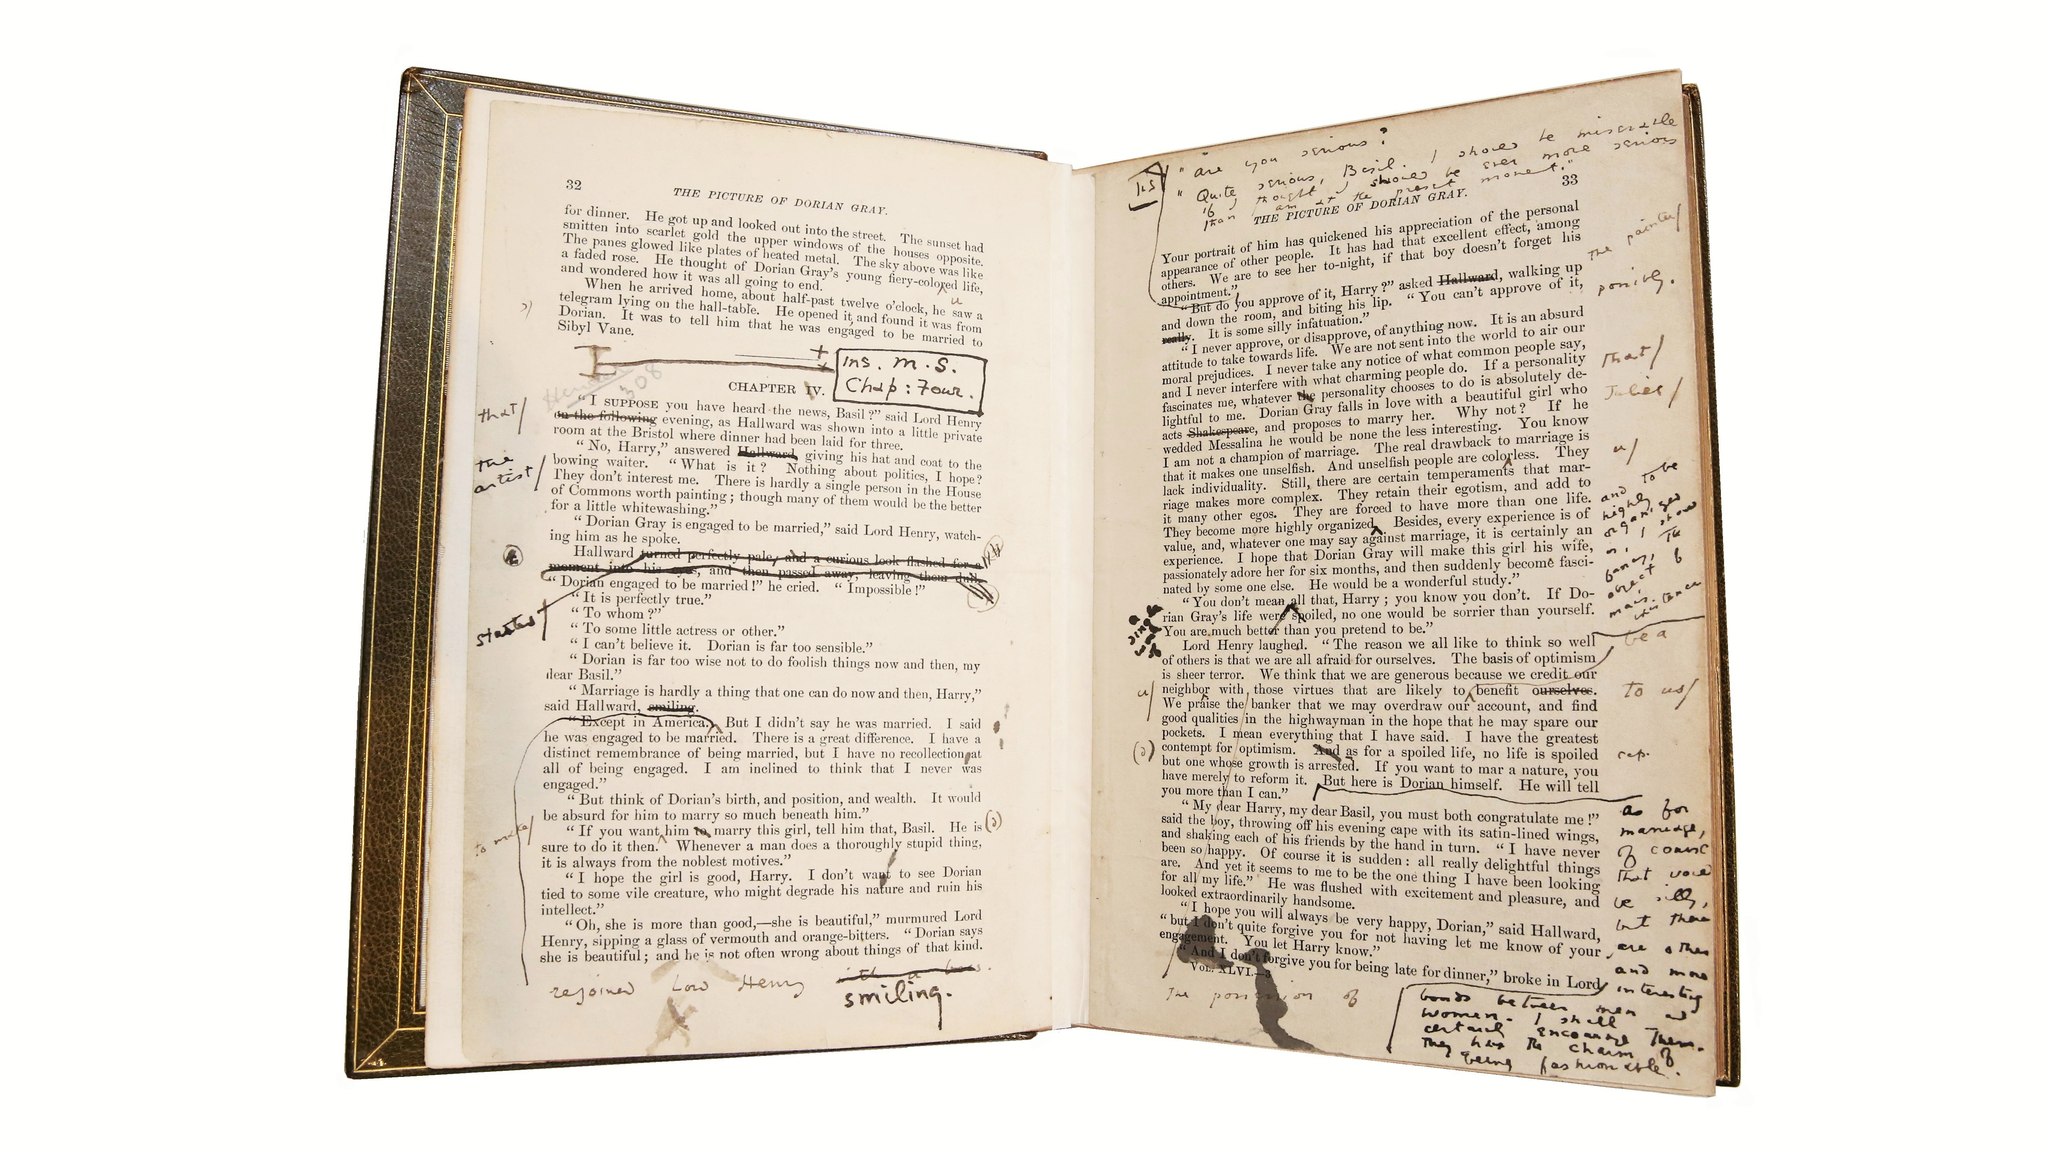 32
THE PICTURE OF DORIAN GRAY.
for dinner. He got up and looked out into the street. The sunset had
smitten into scarlet gold the upper windows of the houses opposite.
The panes glowed like plates of heated metal. The sky above was like
a faded rose. He thought of Dorian Gray's young fiery-colored life,
and wondered how it was all going to end.
u
When he arrived home, about half-past twelve o'clock, he saw a
telegram lying on the hall-table. He opened it and found it was from
Dorian. It was to tell him that he was engaged to be married to
Sibyl Vane.
ins. M.S.
Chap: Four.
308
CHAPTER IV.
"I SUPPOSE you have heard the news, Basil?" said Lord Henry
that/
on the following evening, as Hallward was shown into a little private
room at the Bristol where dinner had been laid for three.
"No, Harry," answered Hallward, giving his hat and coat to the
the
artist/
bowing waiter. "What is it? Nothing about politics, I hope?
They don't interest me. There is hardly a single person in the House
of Commons worth painting; though many of them would be the better
for a little whitewashing."
"Dorian Gray is engaged to be married," said Lord Henry, watch-
ing him as he spoke.
Hallward turned perfectly pale, and a curious look flashed for a
moment into his eyes, and then passed away, leaving them dull.
"Dorian engaged to be married!" he cried. "Impossible!"
"It is perfectly true."
"To whom?"
started
"To some little actress or other."
"I can't believe it. Dorian is far too sensible."
"Dorian is far too wise not to do foolish things now and then, my
dear Basil."
"Marriage is hardly a thing that one can do now and then, Harry,"
said Hallward, smiling.
"Except in America. But I didn't say he was married. I said
he was engaged to be married. There is a great difference. I have a
distinct remembrance of being married, but I have no recollection at
all of being engaged. I am inclined to think that I never was
engaged."
"But think of Dorian's birth, and position, and wealth. It would
be absurd for him to marry so much beneath him."
to make/
"If you want him to marry this girl, tell him that, Basil. He is
sure to do it then. Whenever a man does a thoroughly stupid thing,
it is always from the noblest motives."
"I hope the girl is good, Harry. I don't want to see Dorian
tied to some vile creature, who might degrade his nature and ruin his
intellect."
"Oh, she is more than good,—she is beautiful," murmured Lord
Henry, sipping a glass of vermouth and orange-bitters. "Dorian says
she is beautiful; and he is not often wrong about things of that kind.
rejoined Lord Henry
smiling.
ins
"are you serious?
"Quite serious, Basil. I should be miserable
if I thought I should be ever more serious
than I am at the present moment."
33
THE PICTURE OF DORIAN GRAY.
Your portrait of him has quickened his appreciation of the personal
appearance of other people. It has had that excellent effect, among
others. We are to see her to-night, if that boy doesn't forget his
appointment."
the painter/
"But do you approve of it, Harry?" asked Hallward, walking up
and down the room, and biting his lip. "You can't approve of it,
possibly.
really. It is some silly infatuation."
"I never approve, or disapprove, of anything now. It is an absurd
attitude to take towards life. We are not sent into the world to air our
moral prejudices. I never take any notice of what common people say,
and I never interfere with what charming people do. If a personality
that/
fascinates me, whatever the personality chooses to do is absolutely de-
lightful to me. Dorian Gray falls in love with a beautiful girl who
Juliet/
acts Shakespeare, and proposes to marry her. Why not? If he
wedded Messalina he would be none the less interesting. You know
I am not a champion of marriage. The real drawback to marriage is
that it makes one unselfish. And unselfish people are colorless. They
u/
lack individuality. Still, there are certain temperaments that mar-
riage makes more complex. They retain their egotism, and add to
it many other egos. They are forced to have more than one life.
They become more highly organized. Besides, every experience is of
and to be
highly
organized
is, I should
fancy, the
object of
man's
existence
value, and, whatever one may say against marriage, it is certainly an
experience. I hope that Dorian Gray will make this girl his wife,
passionately adore her for six months, and then suddenly become fasci-
nated by some one else. He would be a wonderful study."
"You don't mean all that, Harry; you know you don't. If Do-
rian Gray's life were spoiled, no one would be sorrier than yourself.
You are much better than you pretend to be."
Lord Henry laughed. "The reason we all like to think so well
be a
of others is that we are all afraid for ourselves. The basis of optimism
is sheer terror. We think that we are generous because we credit our
u/
neighbor with those virtues that are likely to benefit ourselves.
to us/
We praise the banker that we may overdraw our account, and find
good qualities in the highwayman in the hope that he may spare our
pockets. I mean everything that I have said. I have the greatest
contempt for optimism. And as for a spoiled life, no life is spoiled
cap.
but one whose growth is arrested. If you want to mar a nature, you
have merely to reform it. But here is Dorian himself. He will tell
you more than I can."
"My dear Harry, my dear Basil, you must both congratulate me!"
said the boy, throwing off his evening cape with its satin-lined wings,
and shaking each of his friends by the hand in turn. "I have never
been so happy. Of course it is sudden: all really delightful things
are. And yet it seems to me to be the one thing I have been looking
for all my life." He was flushed with excitement and pleasure, and
looked extraordinarily handsome.
"I hope you will always be very happy, Dorian," said Hallward,
"but I don't quite forgive you for not having let me know of your
engagement. You let Harry know."
"And I don't forgive you for being late for dinner," broke in Lord
VOL. XLVI.—3
as for
marriage,
of course
that would
be silly,
but there
are other
and more
interesting
bonds between men and
women. I shall
certainly encourage them.
They have the charm of
being fashionable.
The possession of